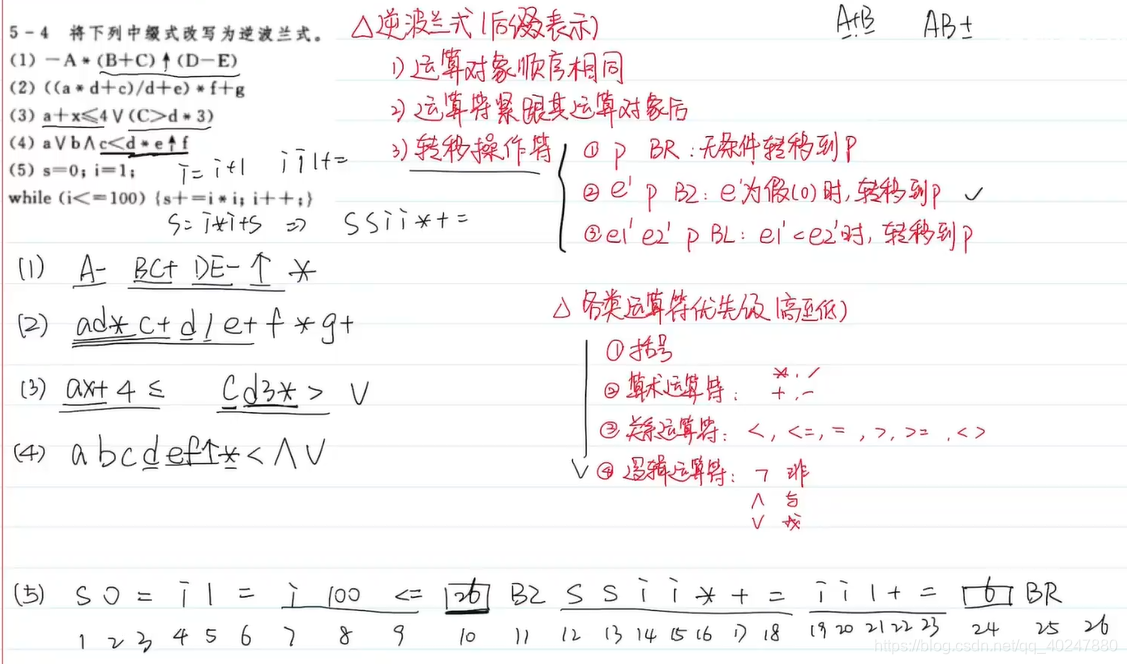 5-4 将下列中缀式改写为逆波兰式。
(1) －A * (B+C) ↑ (D－E)
(2) ((a * d+c)/d+e) * f+g
(3) a+x≤4 ∨ (C>d * 3)
(4) a∨b∧c<d * e↑f
(5) s=0; i=1;
while (i<=100) {s+=i * i; i++;}
i=i+1 i i 1 + =
S=i*i+s ⇒ S S i i * + =
△逆波兰式(后缀表示)
A+B AB+
1) 运算对象顺序相同
2) 运算符紧跟其运算对象后
3) 转移操作符
① p BR：无条件转移到P
② e' p BZ：e'为假(0)时，转移到p ✓
③ e1' e2' p BL：e1'<e2'时，转移到p
(1) A- BC+ DE- ↑ *
(2) ad* c+ d / e+ f * g+
(3) ax+ 4 ≤ C d3* > ∨
(4) a b c d e f ↑ * < ∧ ∨
△ 各类运算符优先级(高至低)
① 括号
② 算术运算符： *, /
+, -
③ 关系运算符：<, <=, =, >, >=, <>
④ 逻辑运算符：¬ 非
∧ 与
∨ 或
(5) S 0 = i 1 = i 100 <= 26 BZ S S i i * + = i i 1 + = 6 BR
1 2 3 4 5 6 7 8 9 10 11 12 13 14 15 16 17 18 19 20 21 22 23 24 25 26
https://blog.csdn.net/qq_40247880